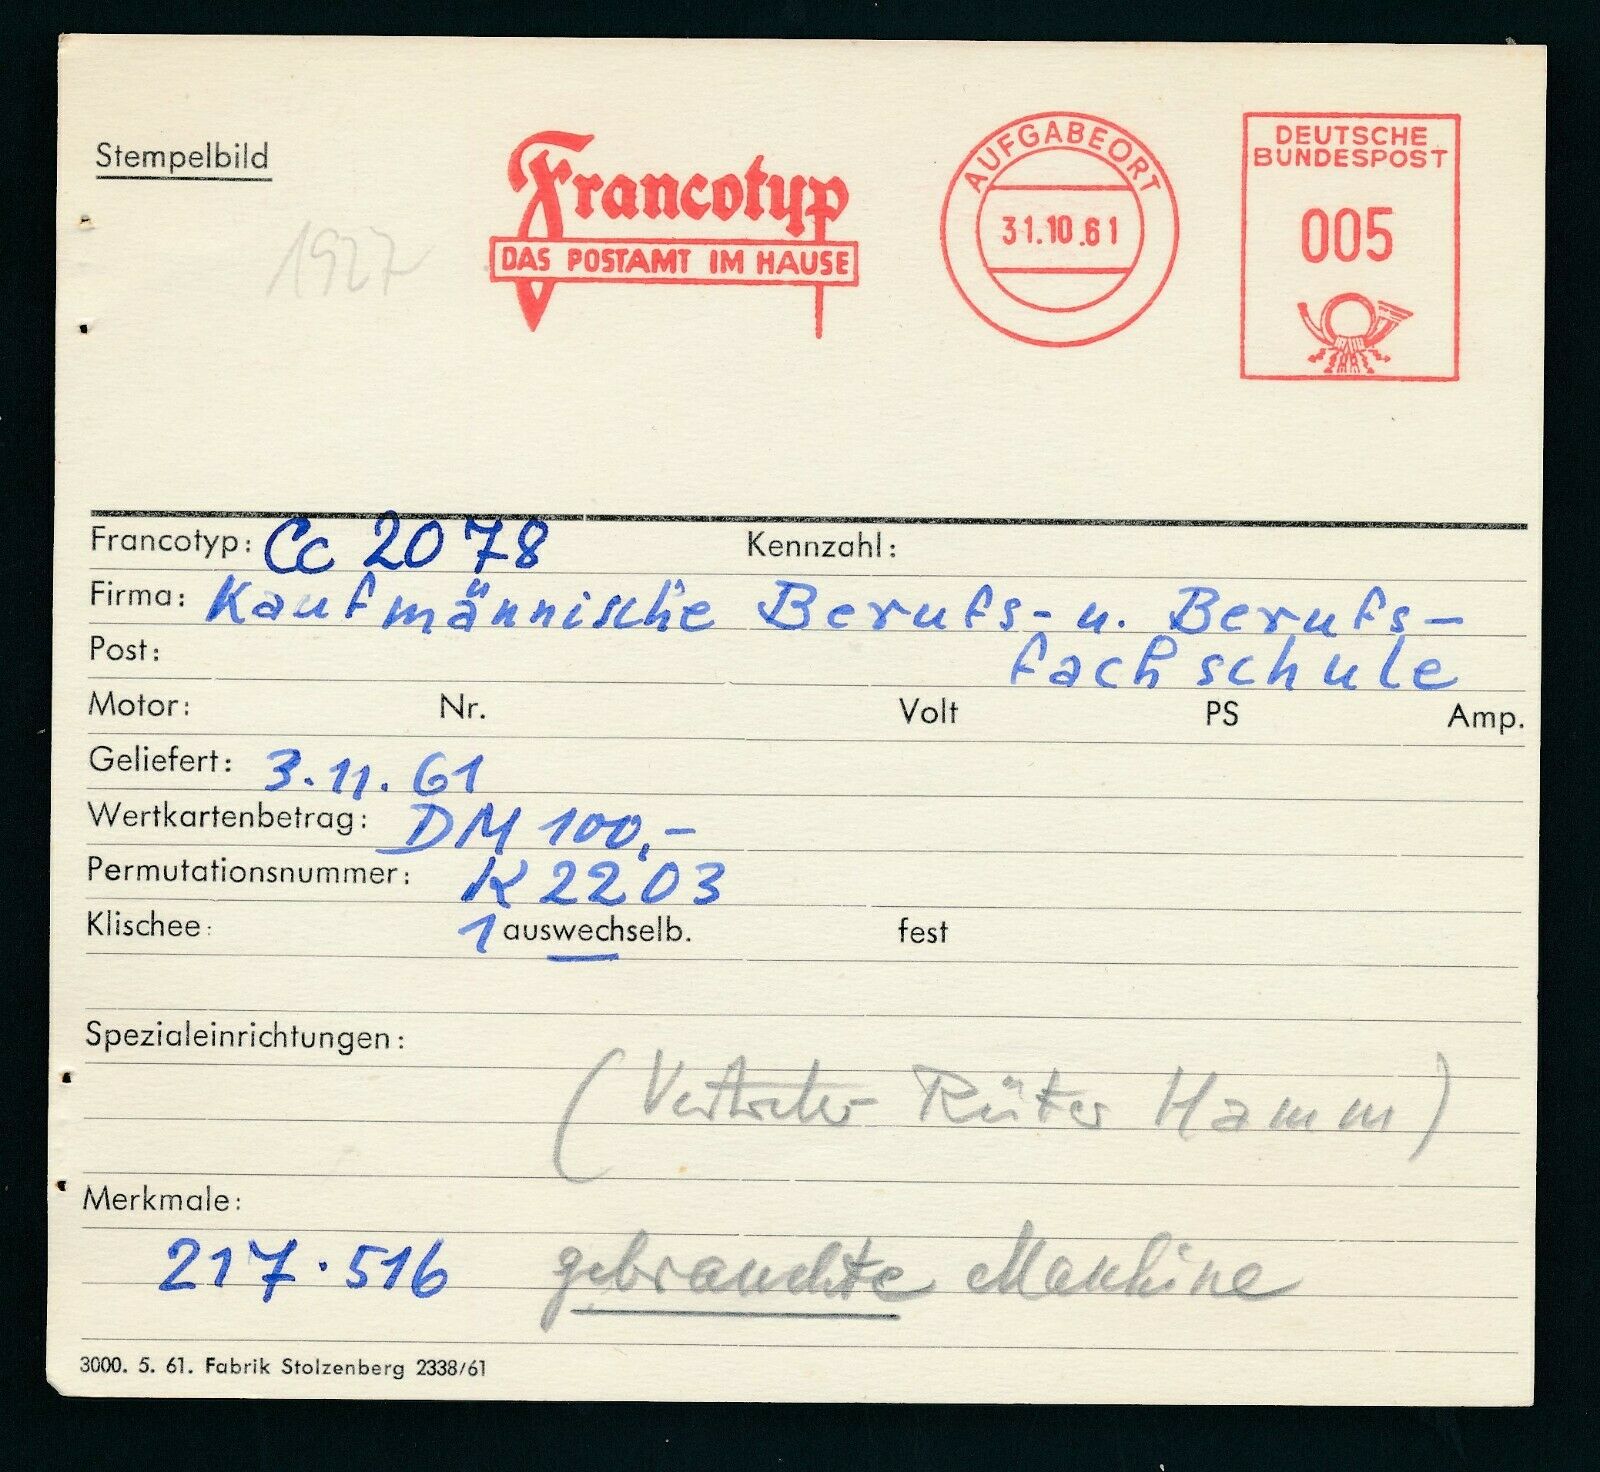 Stempelbild
1927
Francotyp
DAS POSTAMT IM HAUSE
AUFGABEORT
31.10.61
DEUTSCHE
BUNDESPOST
005
Francotyp: Cc 2078 Kennzahl:
Firma: Kaufmännische Berufs- u. Berufs-
Post: fachschule
Motor: Nr. Volt PS Amp.
Geliefert: 3.11.61
Wertkartenbetrag: DM 100,-
Permutationsnummer: K 2203
Klischee: 1 auswechselb. fest
Spezialeinrichtungen:
(Vertreter Rüter Hamm)
Merkmale:
217.516 gebrauchte Maschine
3000. 5. 61. Fabrik Stolzenberg 2338/61